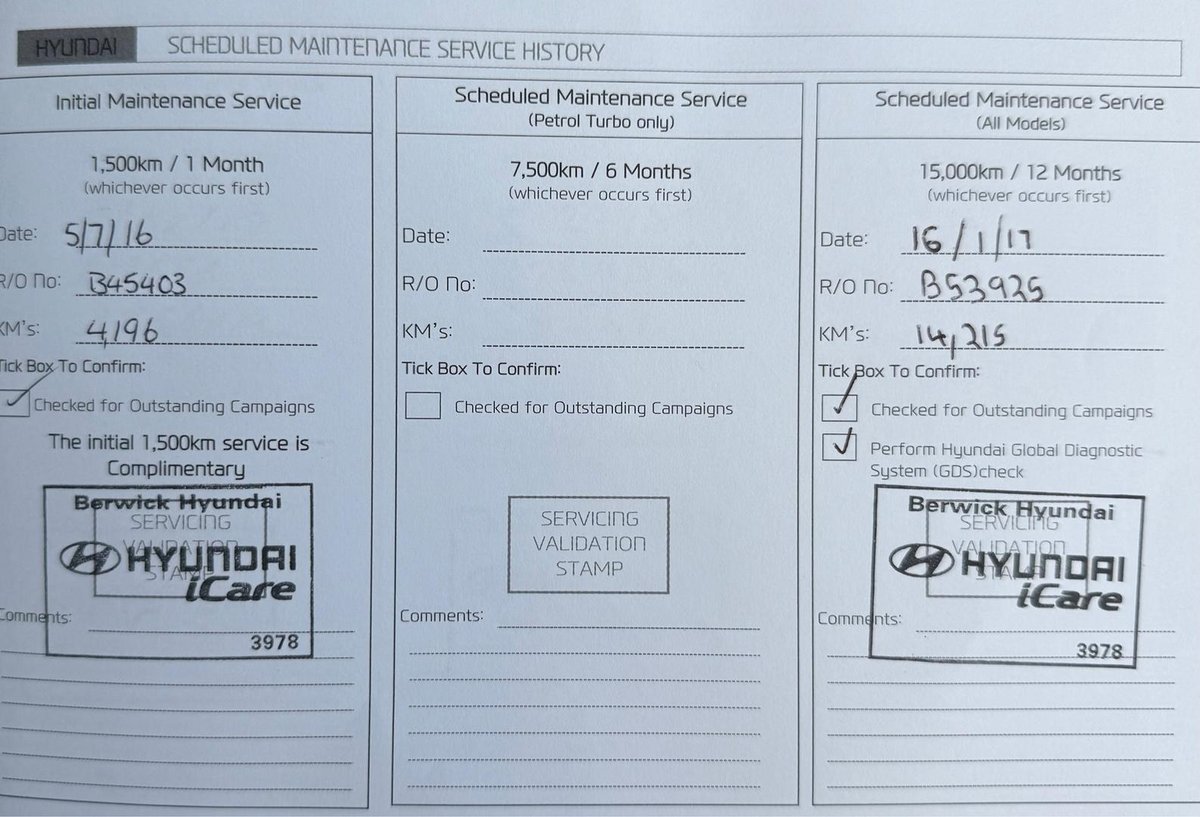 HYUNDAI SCHEDULED MAINTENANCE SERVICE HISTORY
Initial Maintenance Service
1,500km / 1 Month
(whichever occurs first)
Date: 5/7/16
R/O No: B45403
KM's: 4,196
Tick Box To Confirm:
Checked for Outstanding Campaigns
The initial 1,500km service is
Complimentary
Berwick Hyundai
SERVICING
VALIDATION
STAMP
HYUNDAI
iCare
Comments:
3978
Scheduled Maintenance Service
(Petrol Turbo only)
7,500km / 6 Months
(whichever occurs first)
Date:
R/O No:
KM's:
Tick Box To Confirm:
Checked for Outstanding Campaigns
SERVICING
VALIDATION
STAMP
Comments:
Scheduled Maintenance Service
(All Models)
15,000km / 12 Months
(whichever occurs first)
Date: 16/1/17
R/O No: B53925
KM's: 14,215
Tick Box To Confirm:
Checked for Outstanding Campaigns
Perform Hyundai Global Diagnostic
System (GDS)check
Berwick Hyundai
SERVICING
VALIDATION
STAMP
HYUNDAI
iCare
Comments:
3978